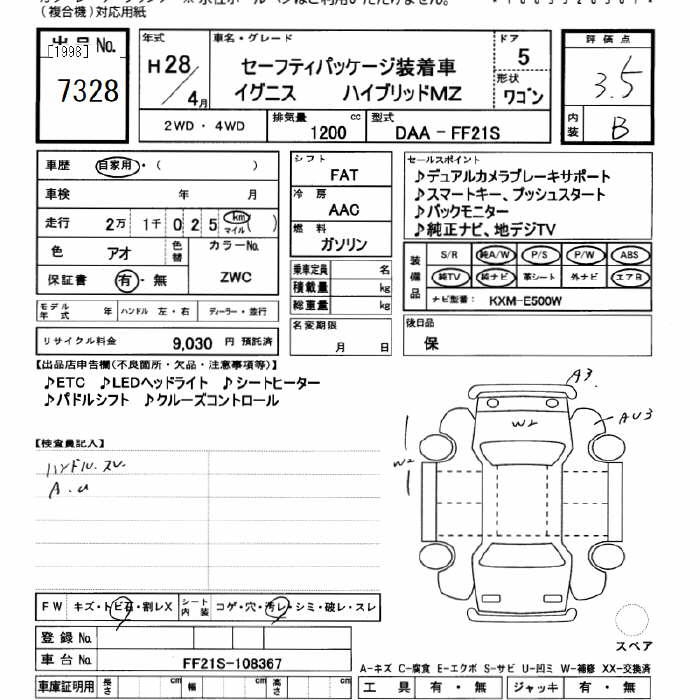 (複合機)対応用紙
出品No.
[1998]
7328
年式
H28/4月
車名・グレード
セーフティパッケージ装着車
イグニス ハイブリッドMZ
ドア
5
形状
ワゴン
2WD・4WD
排気量
1200 cc
型式
DAA-FF21S
評価点
3.5
内装
B
車歴 自家用・( )
車検 年 月
走行 2万 1千 0 2 5 km マイル( )
色 アオ
色替
カラーNo.
ZWC
保証書 有・無
シフト
FAT
冷房
AAC
燃料
ガソリン
乗車定員 名
積載量 kg
総重量 kg
セールスポイント
♪デュアルカメラブレーキサポート
♪スマートキー、プッシュスタート
♪バックモニター
♪純正ナビ、地デジTV
装備品
S/R 純A/W P/S P/W ABS
純TV 純ナビ 革シート 外ナビ エアB
ナビ型番: KXM-E500W
モデル年式 年 ハンドル 左・右 ディーラー・並行
リサイクル料金 9,030 円 預託済
名変期限
月 日
後日品
保
【出品店申告欄(不良箇所・欠品・注意事項等)】
♪ETC ♪LEDヘッドライト ♪シートヒーター
♪パドルシフト ♪クルーズコントロール
【検査員記入】
ハンドル.スレ
A.U
A3
AU3
W2
W2
FW キズ・トビ石・割レX
シート内装 コゲ・穴・汚レ・シミ・破レ・スレ
登録No.
車台No. FF21S-108367
スペア
A-キズ C-腐食 E-エクボ S-サビ U-凹ミ W-補修 XX-交換済
車庫証明用 長さ cm 幅 cm 高さ cm
工具 有・無 ジャッキ 有・無